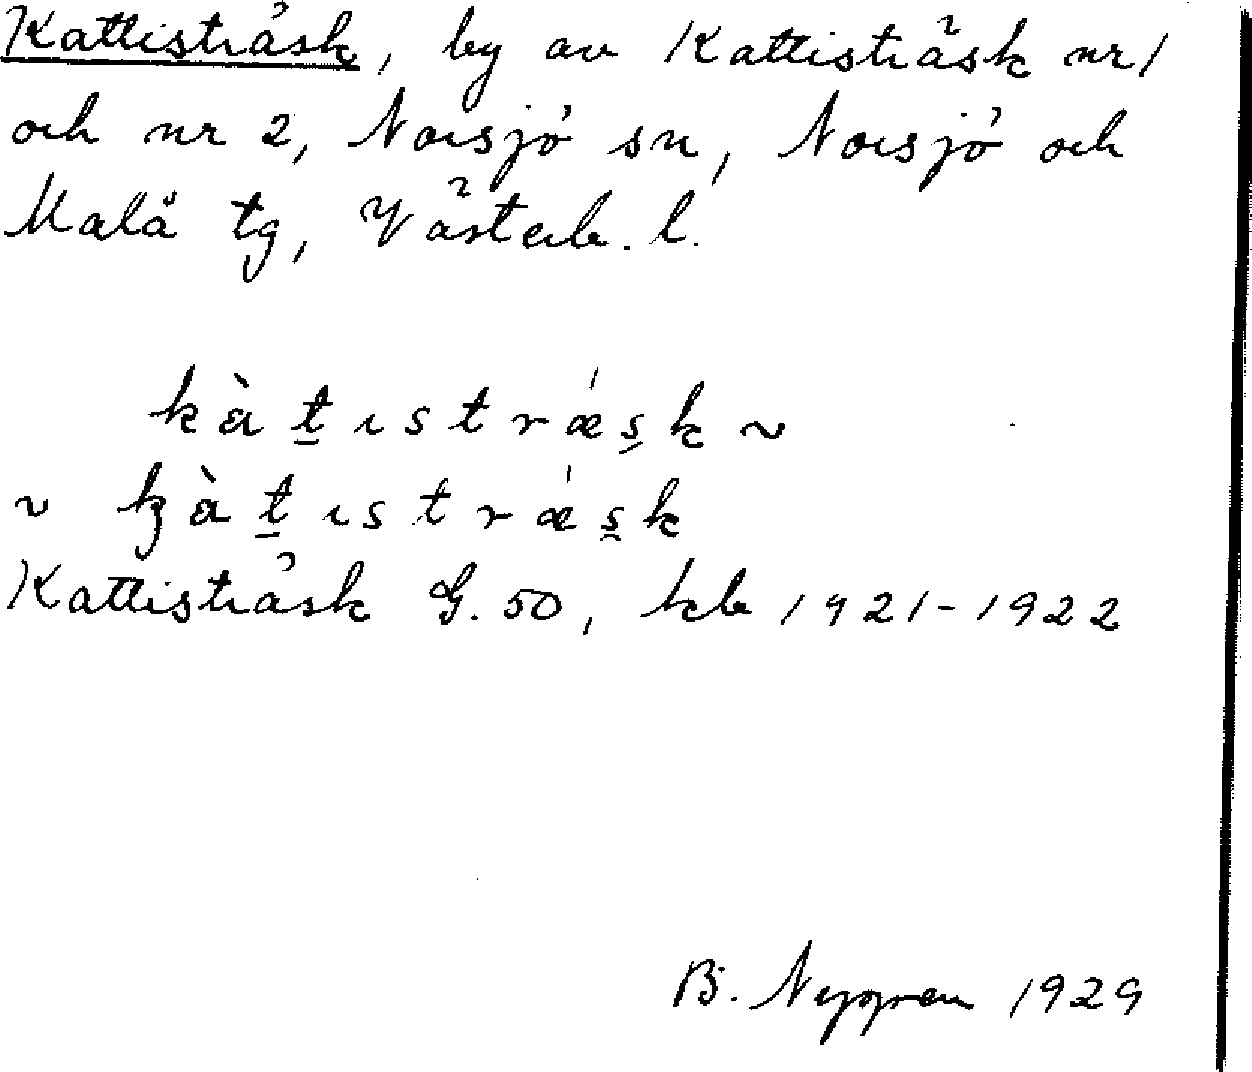 Kattisträsk, by av Kattisträsk nr 1
och nr 2, Norsjö sn, Norsjö och
Malå tg, Västerb. l.
kàt̠ıstrǽş́k ~
~ kʒàt̠ıstrǽs̯k
Kattisträsk G. 50, kb 1921-1922
B. Nygren 1929